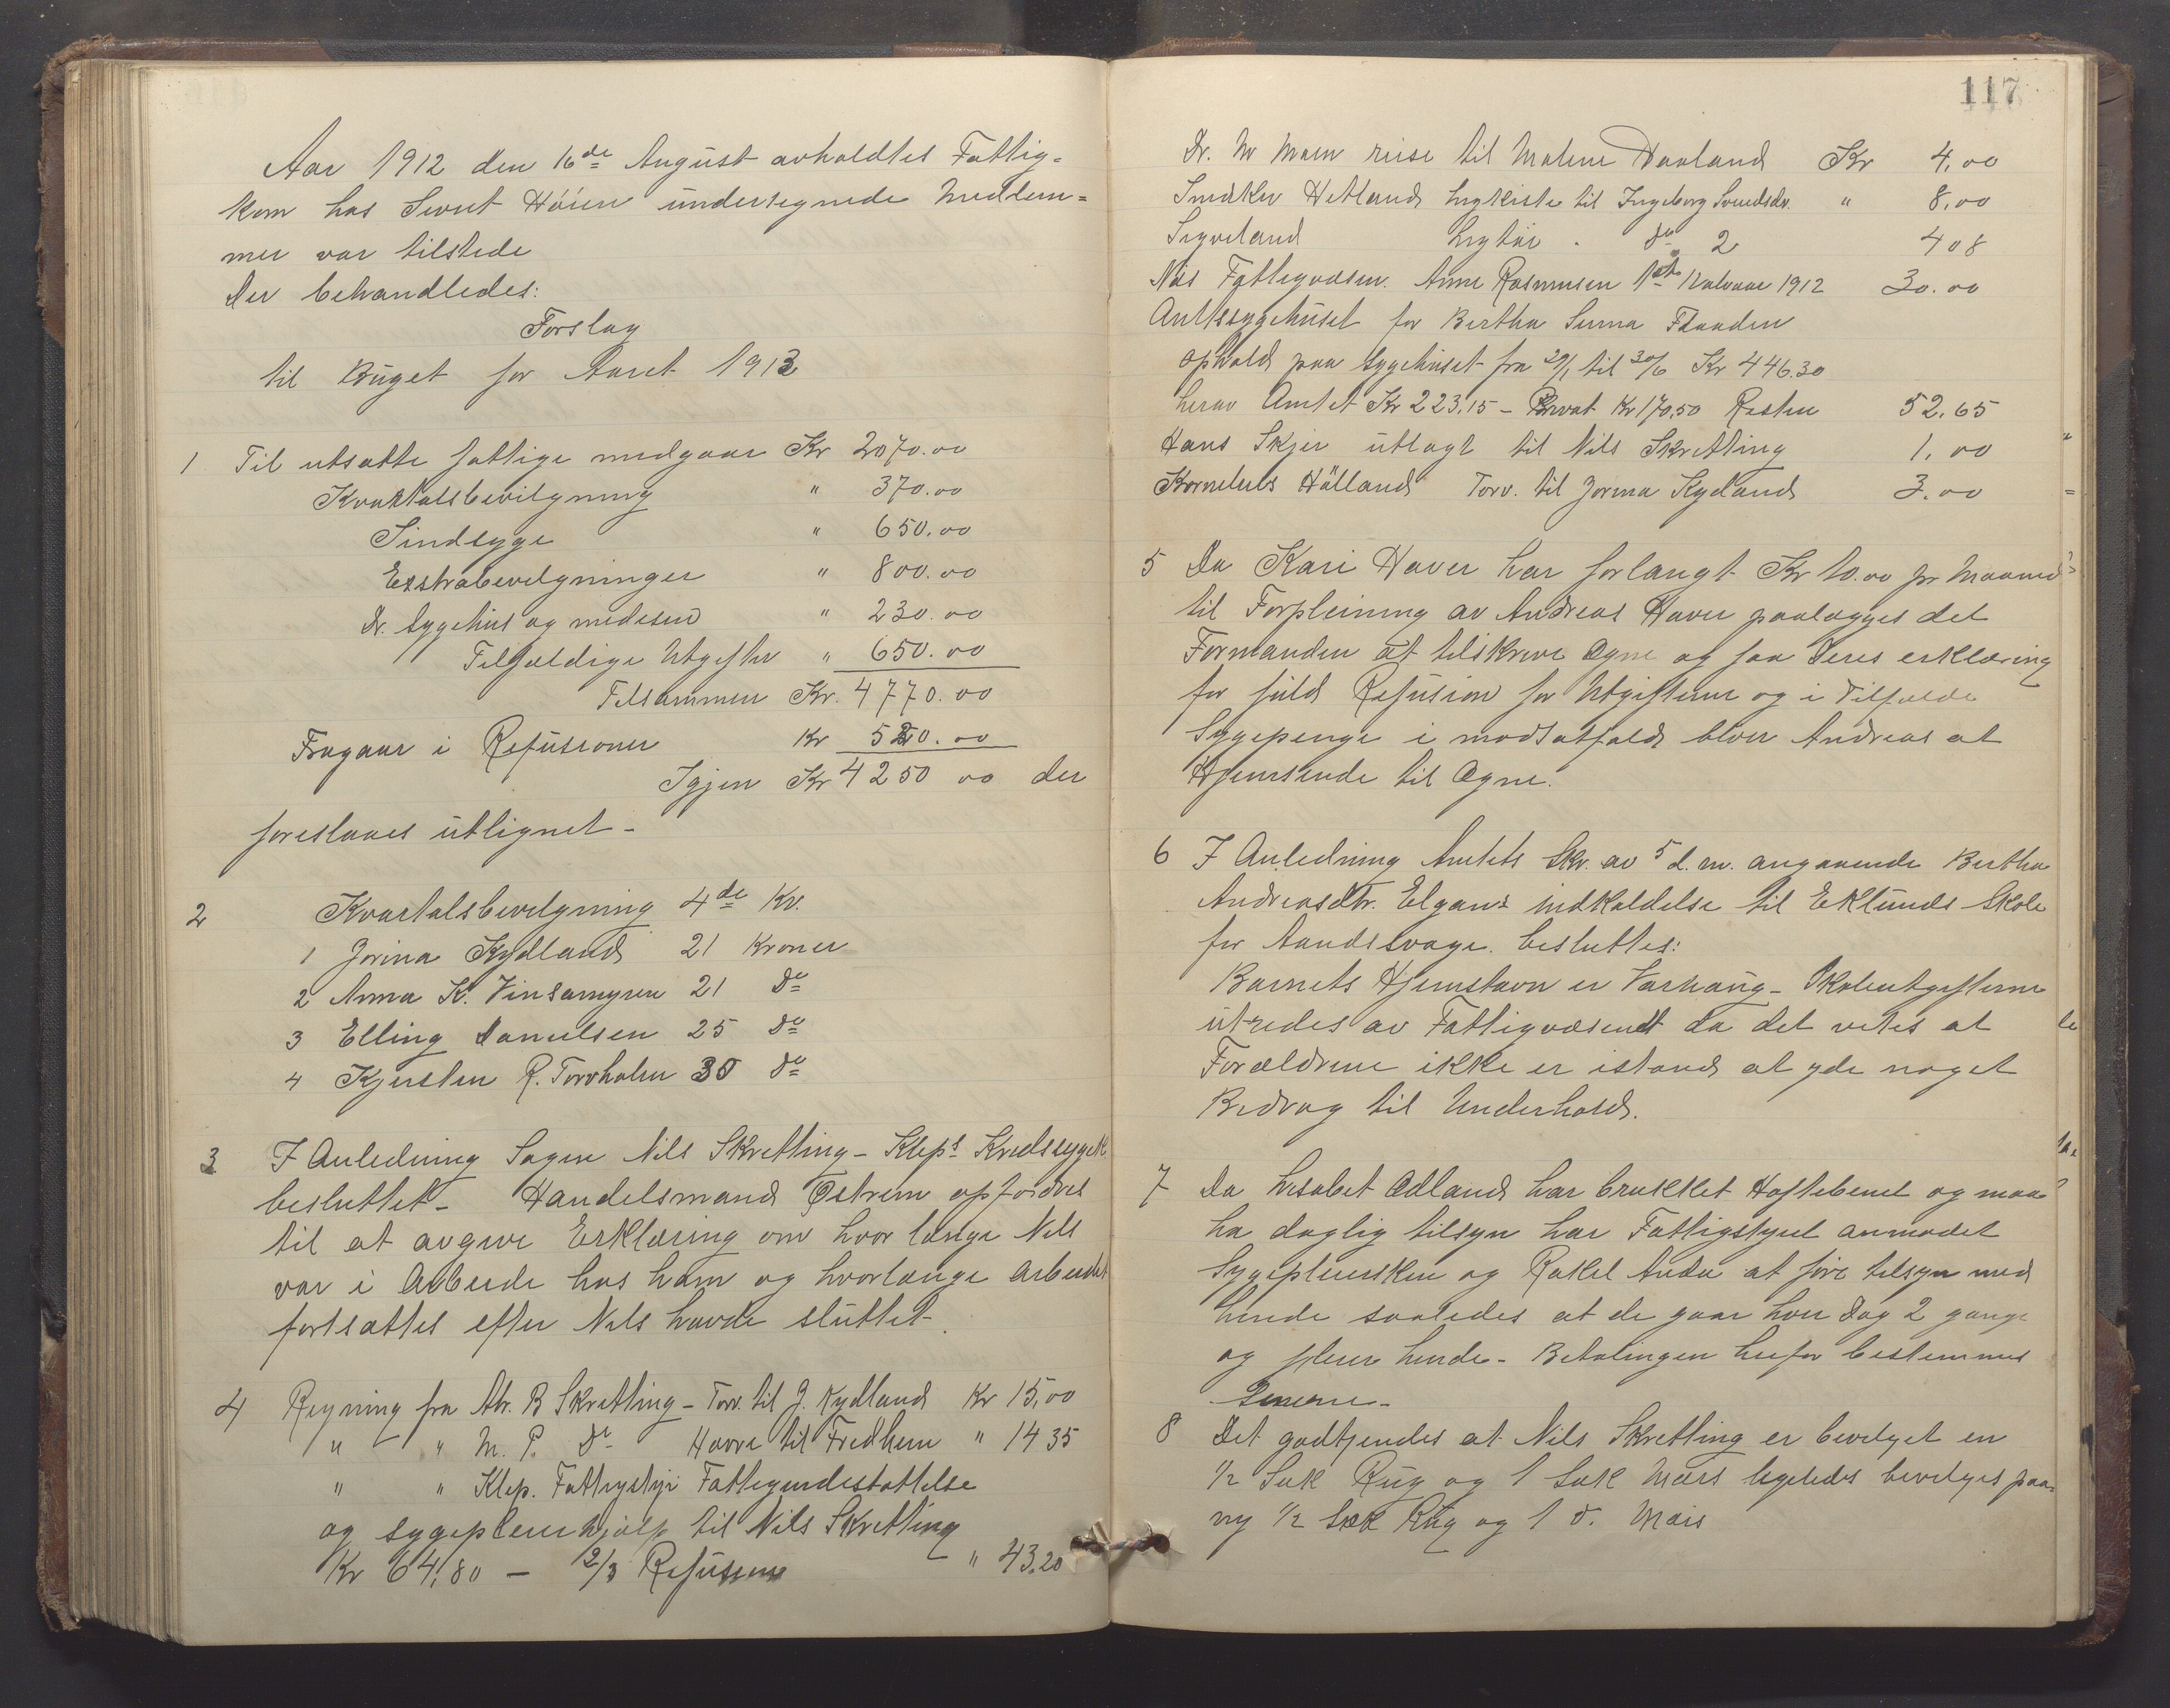 Aar 1912 den 16de August avholdtes Fattig-
kom hos Sivert Höien undertegnede Medlem=
mer var tilstede
Der behandledes:
Forslag
til Buget for Aaret 1913
1 Til utsatte fattige medgaar Kr 2070.00
Kvartalsbevilgning " 370.00
Sindsyge " 650.00
Exstrabevilgninger " 800.00
Dr. Sygehus og medesin " 230.00
Tilfældige Utgifter " 650.00
Tilsammen Kr. 4770.00
Fragaar i Refusioner Kr 520.00
Igjen Kr 4250 00 der
foreslaaes utlignet -
2 Kvartalsbevilgning 4de Kv.
1 Jorina Kydland 21 Kroner
2 Anna K. Vinsamyren 21 do
3 Elling Danielsen 25 do
4 Kjersten R. Torvholen 30 do
3 I Anledning Sagen Nils Skretting - Kleps Kredssygek
besluttet - Handelsmand Østrem opfordres
til at avgive Erklæring om hvor længe Nils
var i Arbeide hos ham og hvorlænge arbeidet
fortsattes efter Nils havde sluttet.
4 Regning fra Abr. B Skretting - Torv. til J. Kydland Kr 15,00
" " M. P. do Havre til Fredheim " 14 35
" " Klep. Fattigstyr Fattigundestøttelse
og sygepleierhjælp til Nils Skretting
Kr 64,80 - 2/3 Refusion " 43.20
117
Dr. Mæen reise til Malene Haaland Kr 4,00
Snedker Hetland Ligkiste til Ingeborg Svendsdr. " 8,00
Sigveland Ligtøi . do 2 4 08
Næs Fattigvæsen. Anne Rasmusen 1ste Halvaar 1912 30.00
Amtssygehuset for Bertha Serina
ophold paa Sygehuset fra 29/1 til 30/6 Kr 446.30
herav Amtet Kr 223,15 - Privat Kr 170,50 Resten 52,65
Hans Skjer utlagt til Nils Skretting 1,00
Kornelius Hålland Torv. til Jorina Kydland 3.00
5 Da Kari Haver har forlangt Kr 10.00 pr Maaned
til Forpleining av Andreas Haver paalægges det
Formanden at tilskrive Ogne og faa deres erklæring
for fuld Refusion for Utgifterne og i Tilfælde
Sygepenge i modsatfald blver Andreas at
Hjemsende til Ogne.
6 I Anledning Amtets Skr. av 5 d.m. angaaende Bertha
Andreasdtr. Elgane indkaldelse til Eklunds Skole
for Aandssvage. besluttes:
Barnets Hjemstavn er Varhaug - Skoleutgifterne
utredes av Fattigvæsendt da det vites at
Forældrene ikke er istand at yde noget
Bidrag til Underhold.
7 Da Lisabet Ødland har brukket Hoftebenet og maa
ha daglig tilsyn har Fattigstyret anmodet
Sygepleiersken og Rakel Anda at føre tilsyn med
hende saaledes at de gaar hver Dag 2 gange
og pleier hende - Betalingen herfor bestemmes
Senere -
8 Det godkjendes at Nils Skretting er bevilget en
1/2 Sæk Rug og 1 Sæk Mais ligeledes bevilges paa-
ny 1/2 Sæk Rug og 1 d. Mais